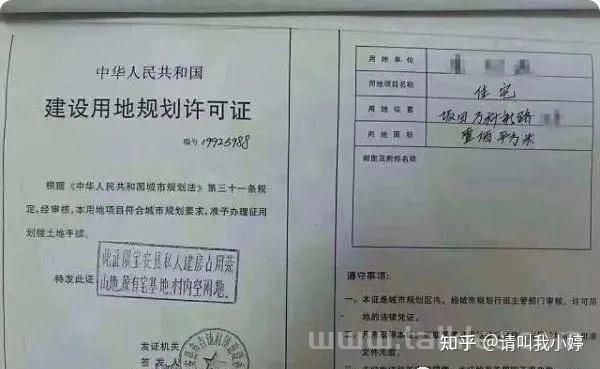 中华人民共和国
建设用地规划许可证
编号 19925988
根据《中华人民共和国城市规划法》第三十一条规
定,经审核,本用地项目符合城市规划要求,准予办理征用
划拨土地手续。
此证限宝安县私人建房占用荒
山地、原有宅基地、村内空闲地。
特发此证
发证机关
签发人
用地单位
用地项目名称 住宅
用地位置 坂田万科
用地面积 壹佰平方米
附图及附件名称
遵守事项:
一、本证是城市规划区内,经城市规划行政主管部门审核,许可用
地的法律凭证。
文件无效。
知乎 @请叫我小婷